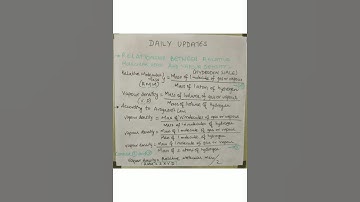 DAILY UPDATES
RELATIONSHIP BETWEEN RELATIVE
MOLECULAR MASS AND VAPOUR DENSITY
(HYDROGEN SCALE)
Relative Molecular Mass (RMM) = Mass of 1 molecule of gas or vapour
Mass of 1 atom of hydrogen
Vapour density (V.D) = Mass of 1 volume of gas or vapour
Mass of 1 volume of hydrogen
According to Avogadro's Law
Vapour density = Mass of n molecules of gas or vapour
Mass of n molecules of hydrogen
Vapour density = Mass of 1 molecule of gas or vapour
Mass of 1 molecule of hydrogen
Vapour density = Mass of 1 molecule of gas or vapour
Mass of 2 atoms of hydrogen
Vapour density = Relative molecular mass
2